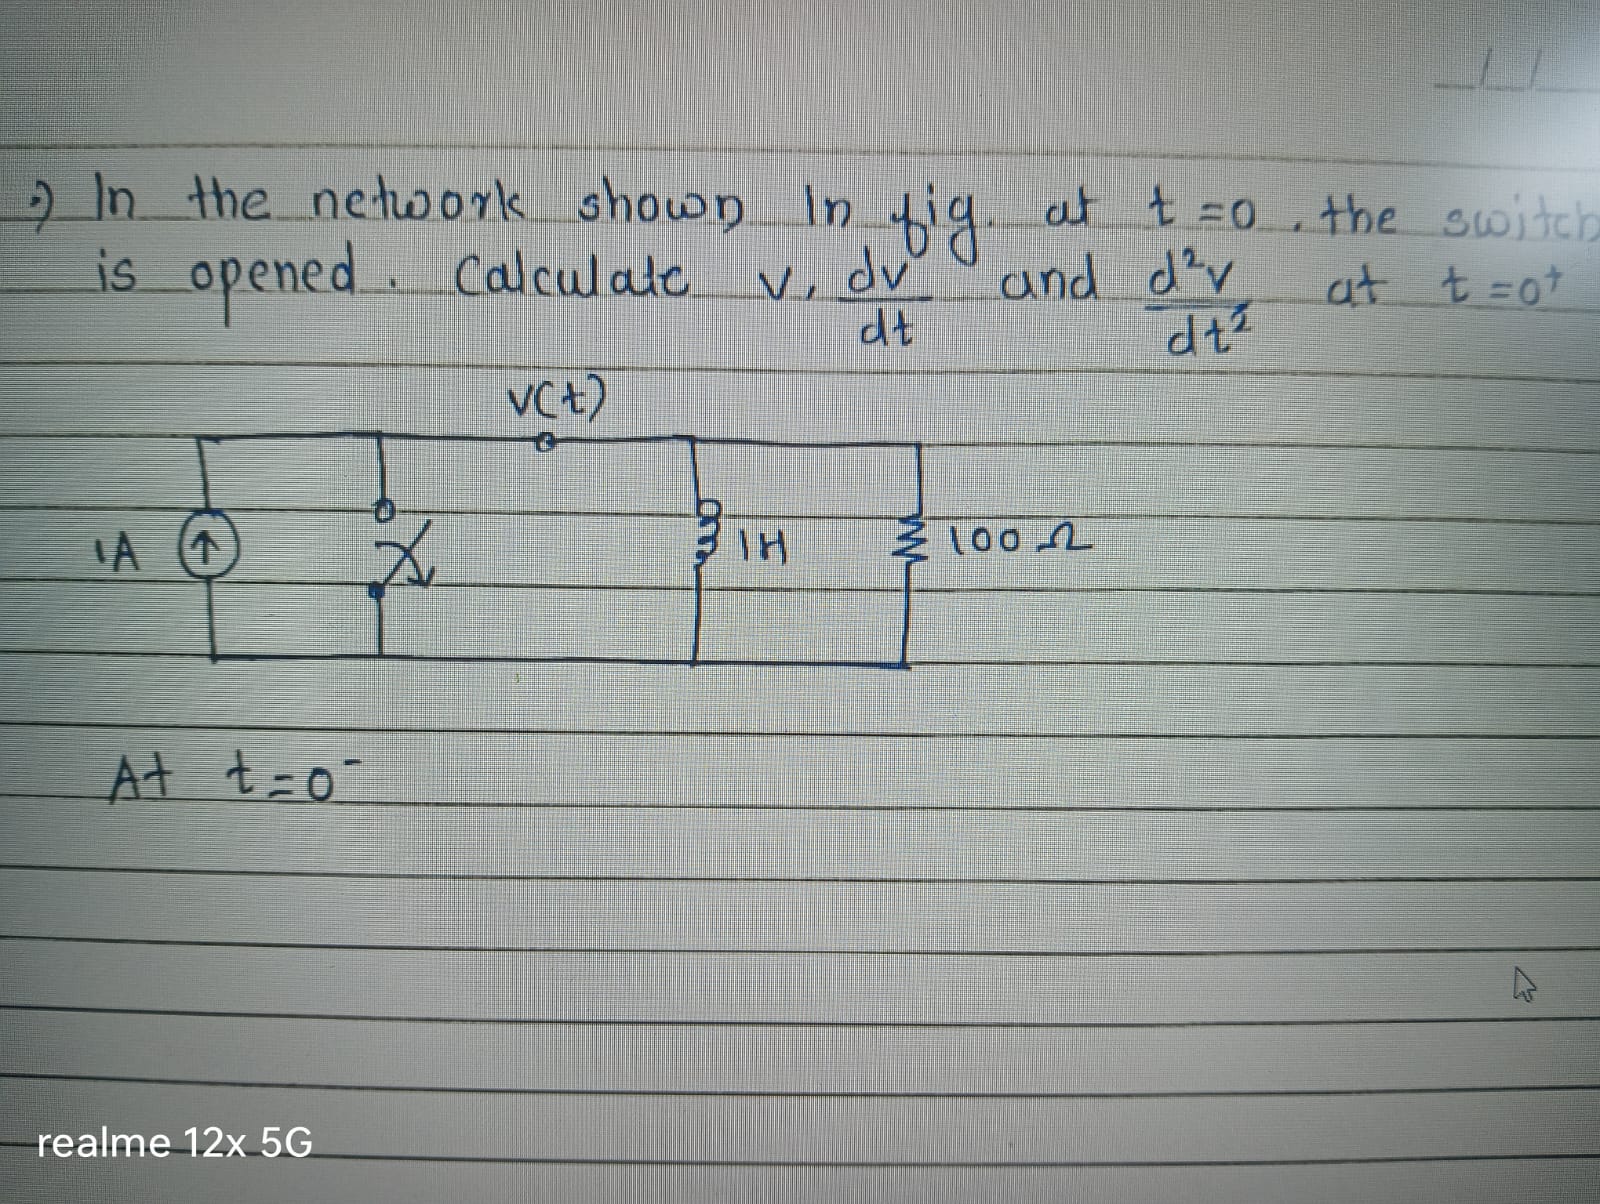 ⇒) In the network shown In fig. at t=0, the switch
is opened. Calculate v, dv/dt and d²v/dt² at t=0⁺
v(t)
1A
1H
100 Ω
At t=0⁻
realme 12x 5G